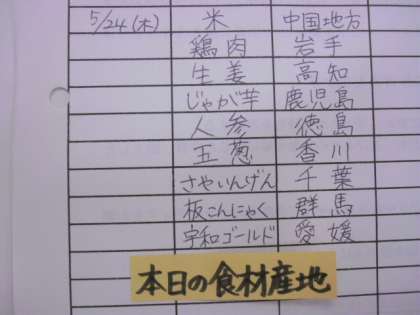 5/24(木) 米 中国地方
鶏肉 岩手
生姜 高知
じゃが芋 鹿児島
人参 徳島
玉葱 香川
さやいんげん 千葉
板こんにゃく 群馬
宇和ゴールド 愛媛
本日の食材産地